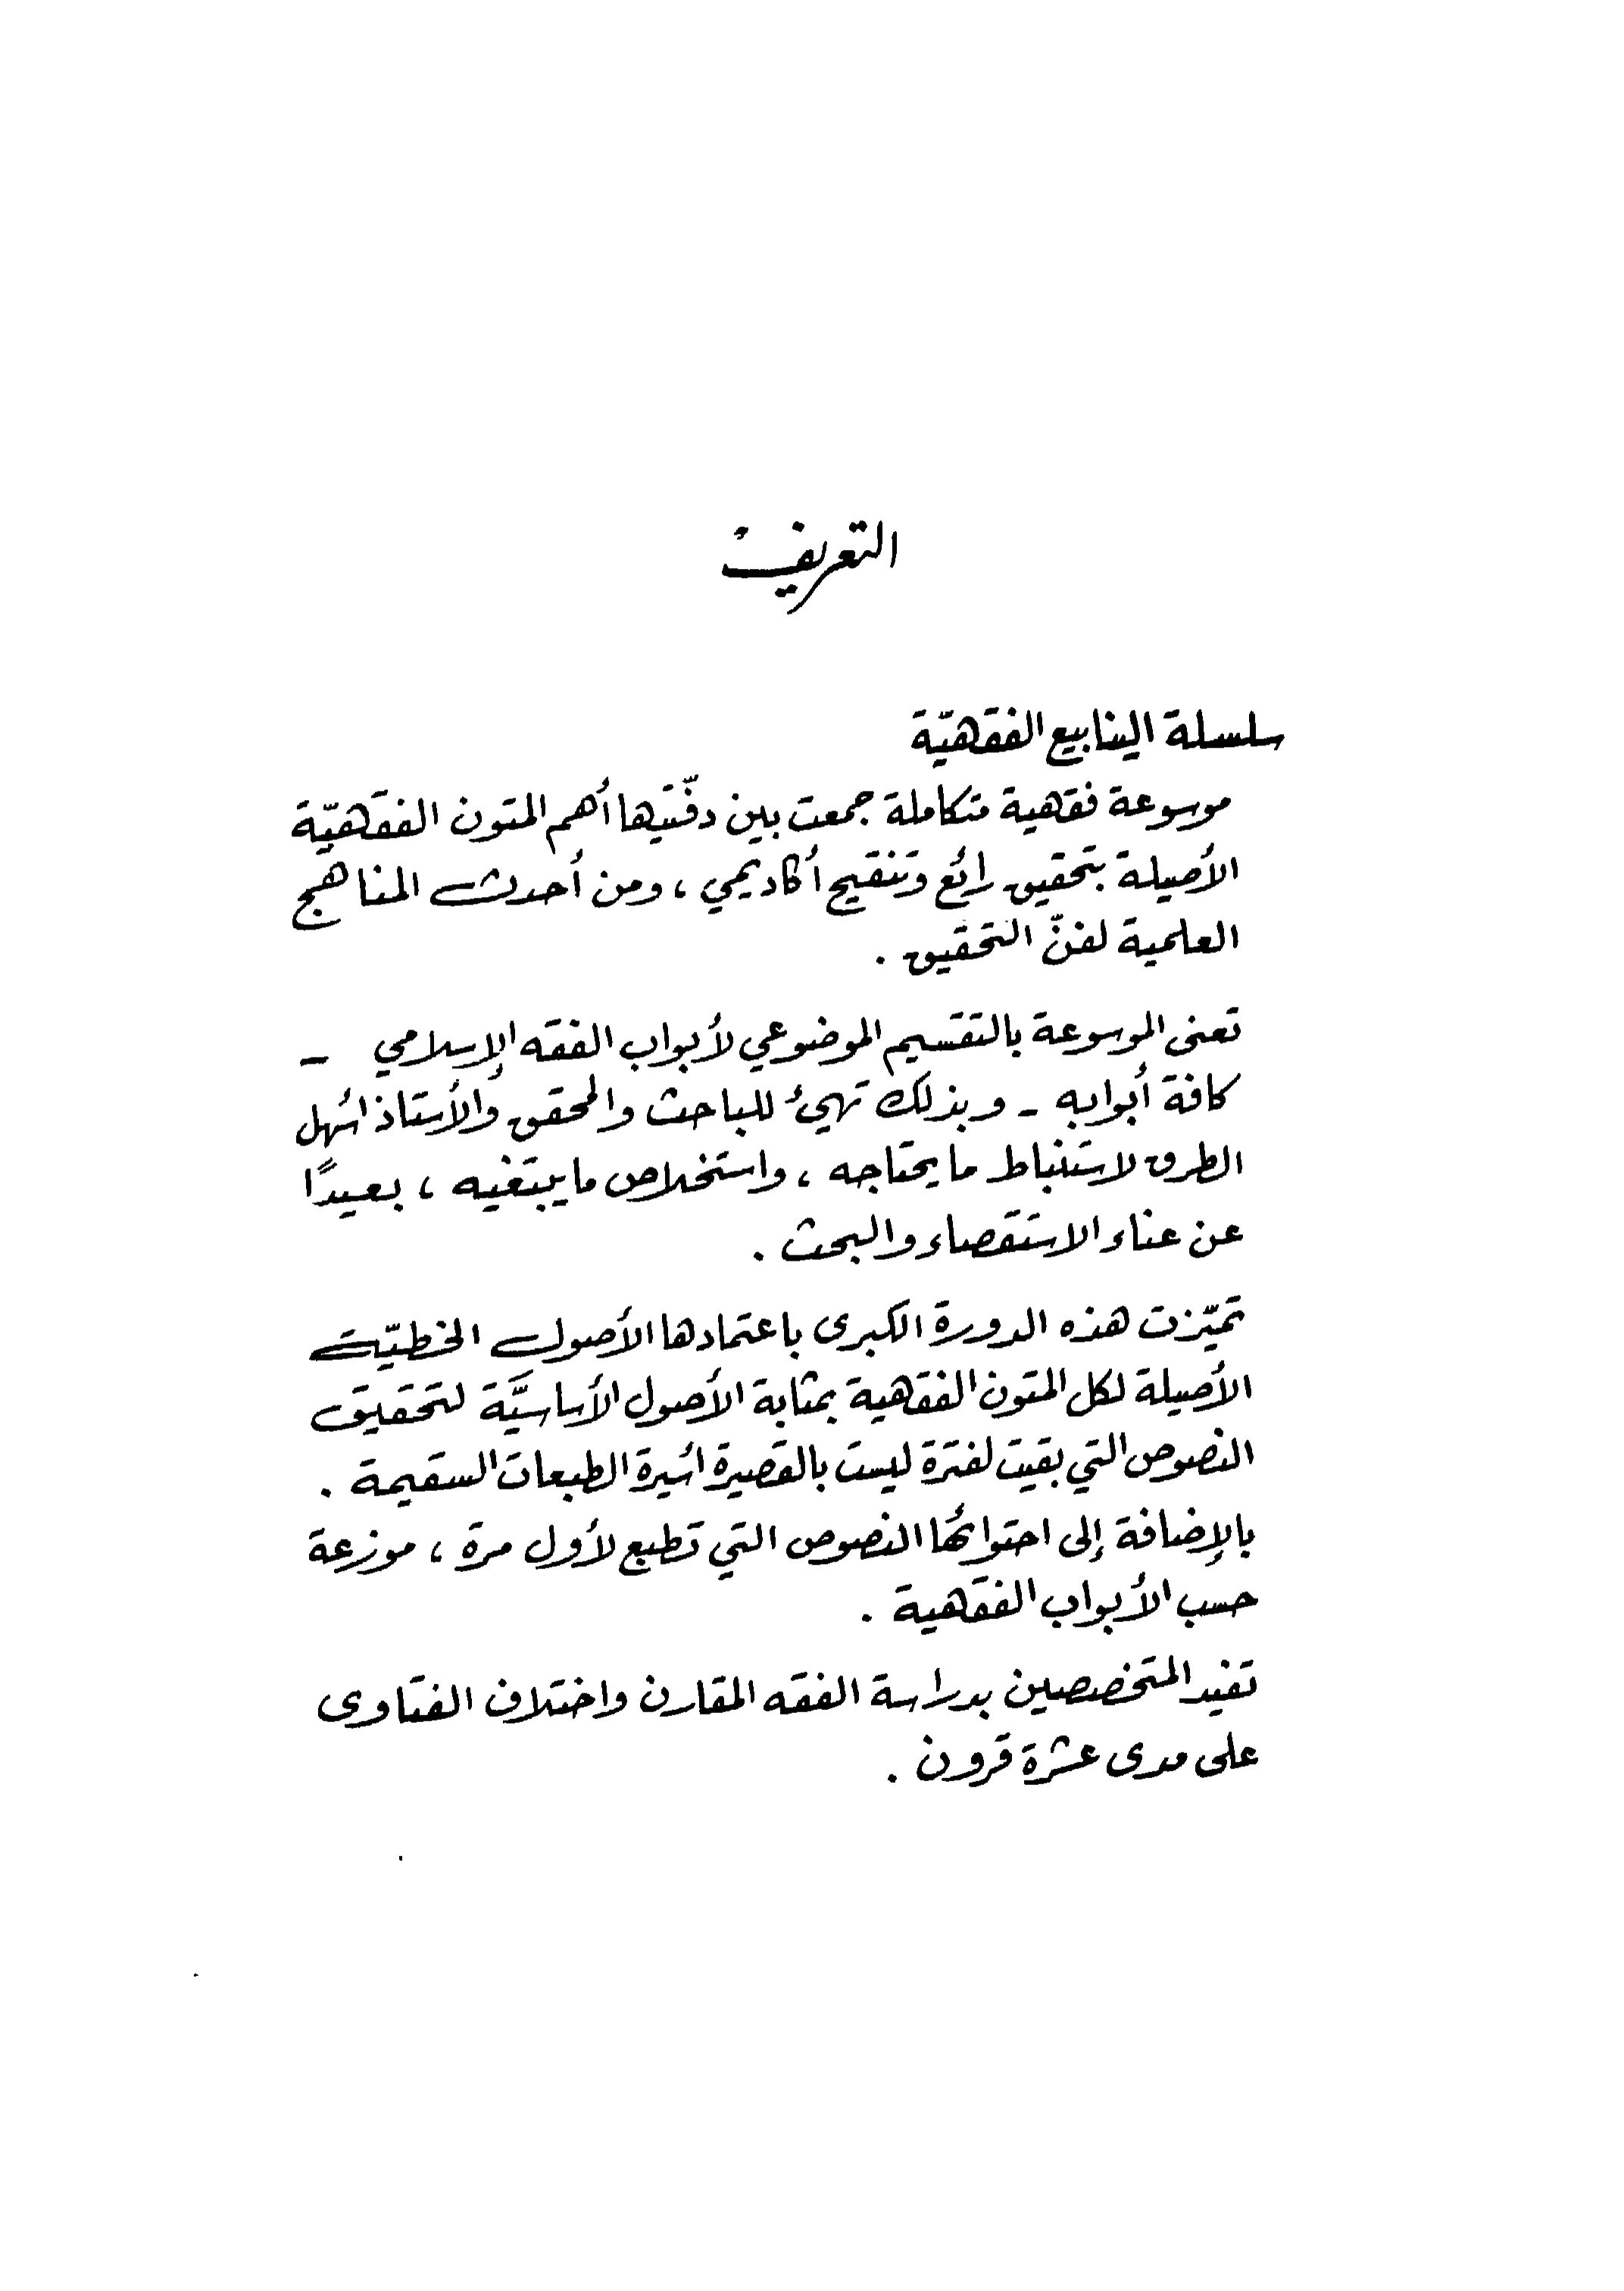 التعريف
سلسلة الينابيع الفقهيّة
موسوعة فقهية متكاملة جمعت بين دفّتيها أهم المتون الفقهيّة
الأصيلة بتحقيق رائع وتنقيح أكاديمي، ومن أحدث المناهج
العلمية لفنّ التحقيق.
تعنى الموسوعة بالتقسيم الموضوعي لأبواب الفقه الإسلامي -
كافة أبوابه - وبذلك تهيئ للباحث والمحقق والأستاذ أسهل
الطرق لاستنباط ما يحتاجه، واستخلاص ما يبتغيه، بعيدًا
عن عناء الاستقصاء والبحث.
تميّزت هذه الدورة الكبرى باعتمادها الأصول الخطيّة
الأصيلة لكل المتون الفقهية بمثابة الأصول الأساسيَّة لتحقيق
النصوص التي بقيت لفترة ليست بالقصيرة أسيرة الطبعات السقيمة.
بالإضافة إلى احتوائها النصوص التي تطبع لأول مرة، موزعة
حسب الأبواب الفقهية.
تفيد المتخصصين بدراسة الفقه المقارن واختلاف الفتاوى
على مدى عشرة قرون.